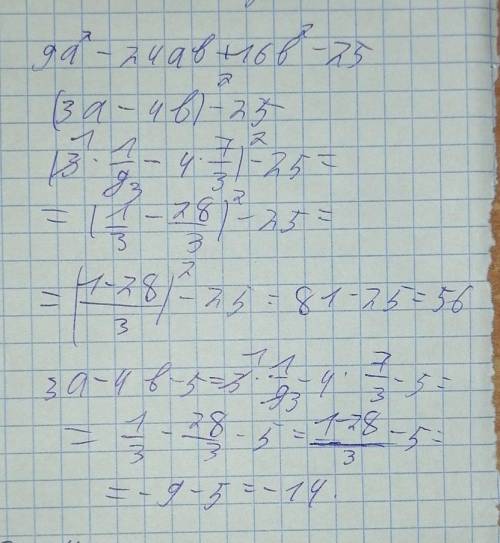 9a² - 24ab + 16b² - 25
(3a - 4b)² - 25
(3¹ · 1/9₃ - 4 · 7/3)² - 25 =
= (1/3 - 28/3)² - 25 =
= ((1-28)/3)² - 25 = 81 - 25 = 56
3a - 4b - 5 = 3¹ · 1/9₃ - 4 · 7/3 - 5 =
= 1/3 - 28/3 - 5 = (1-28)/3 - 5 =
= -9 - 5 = -14.